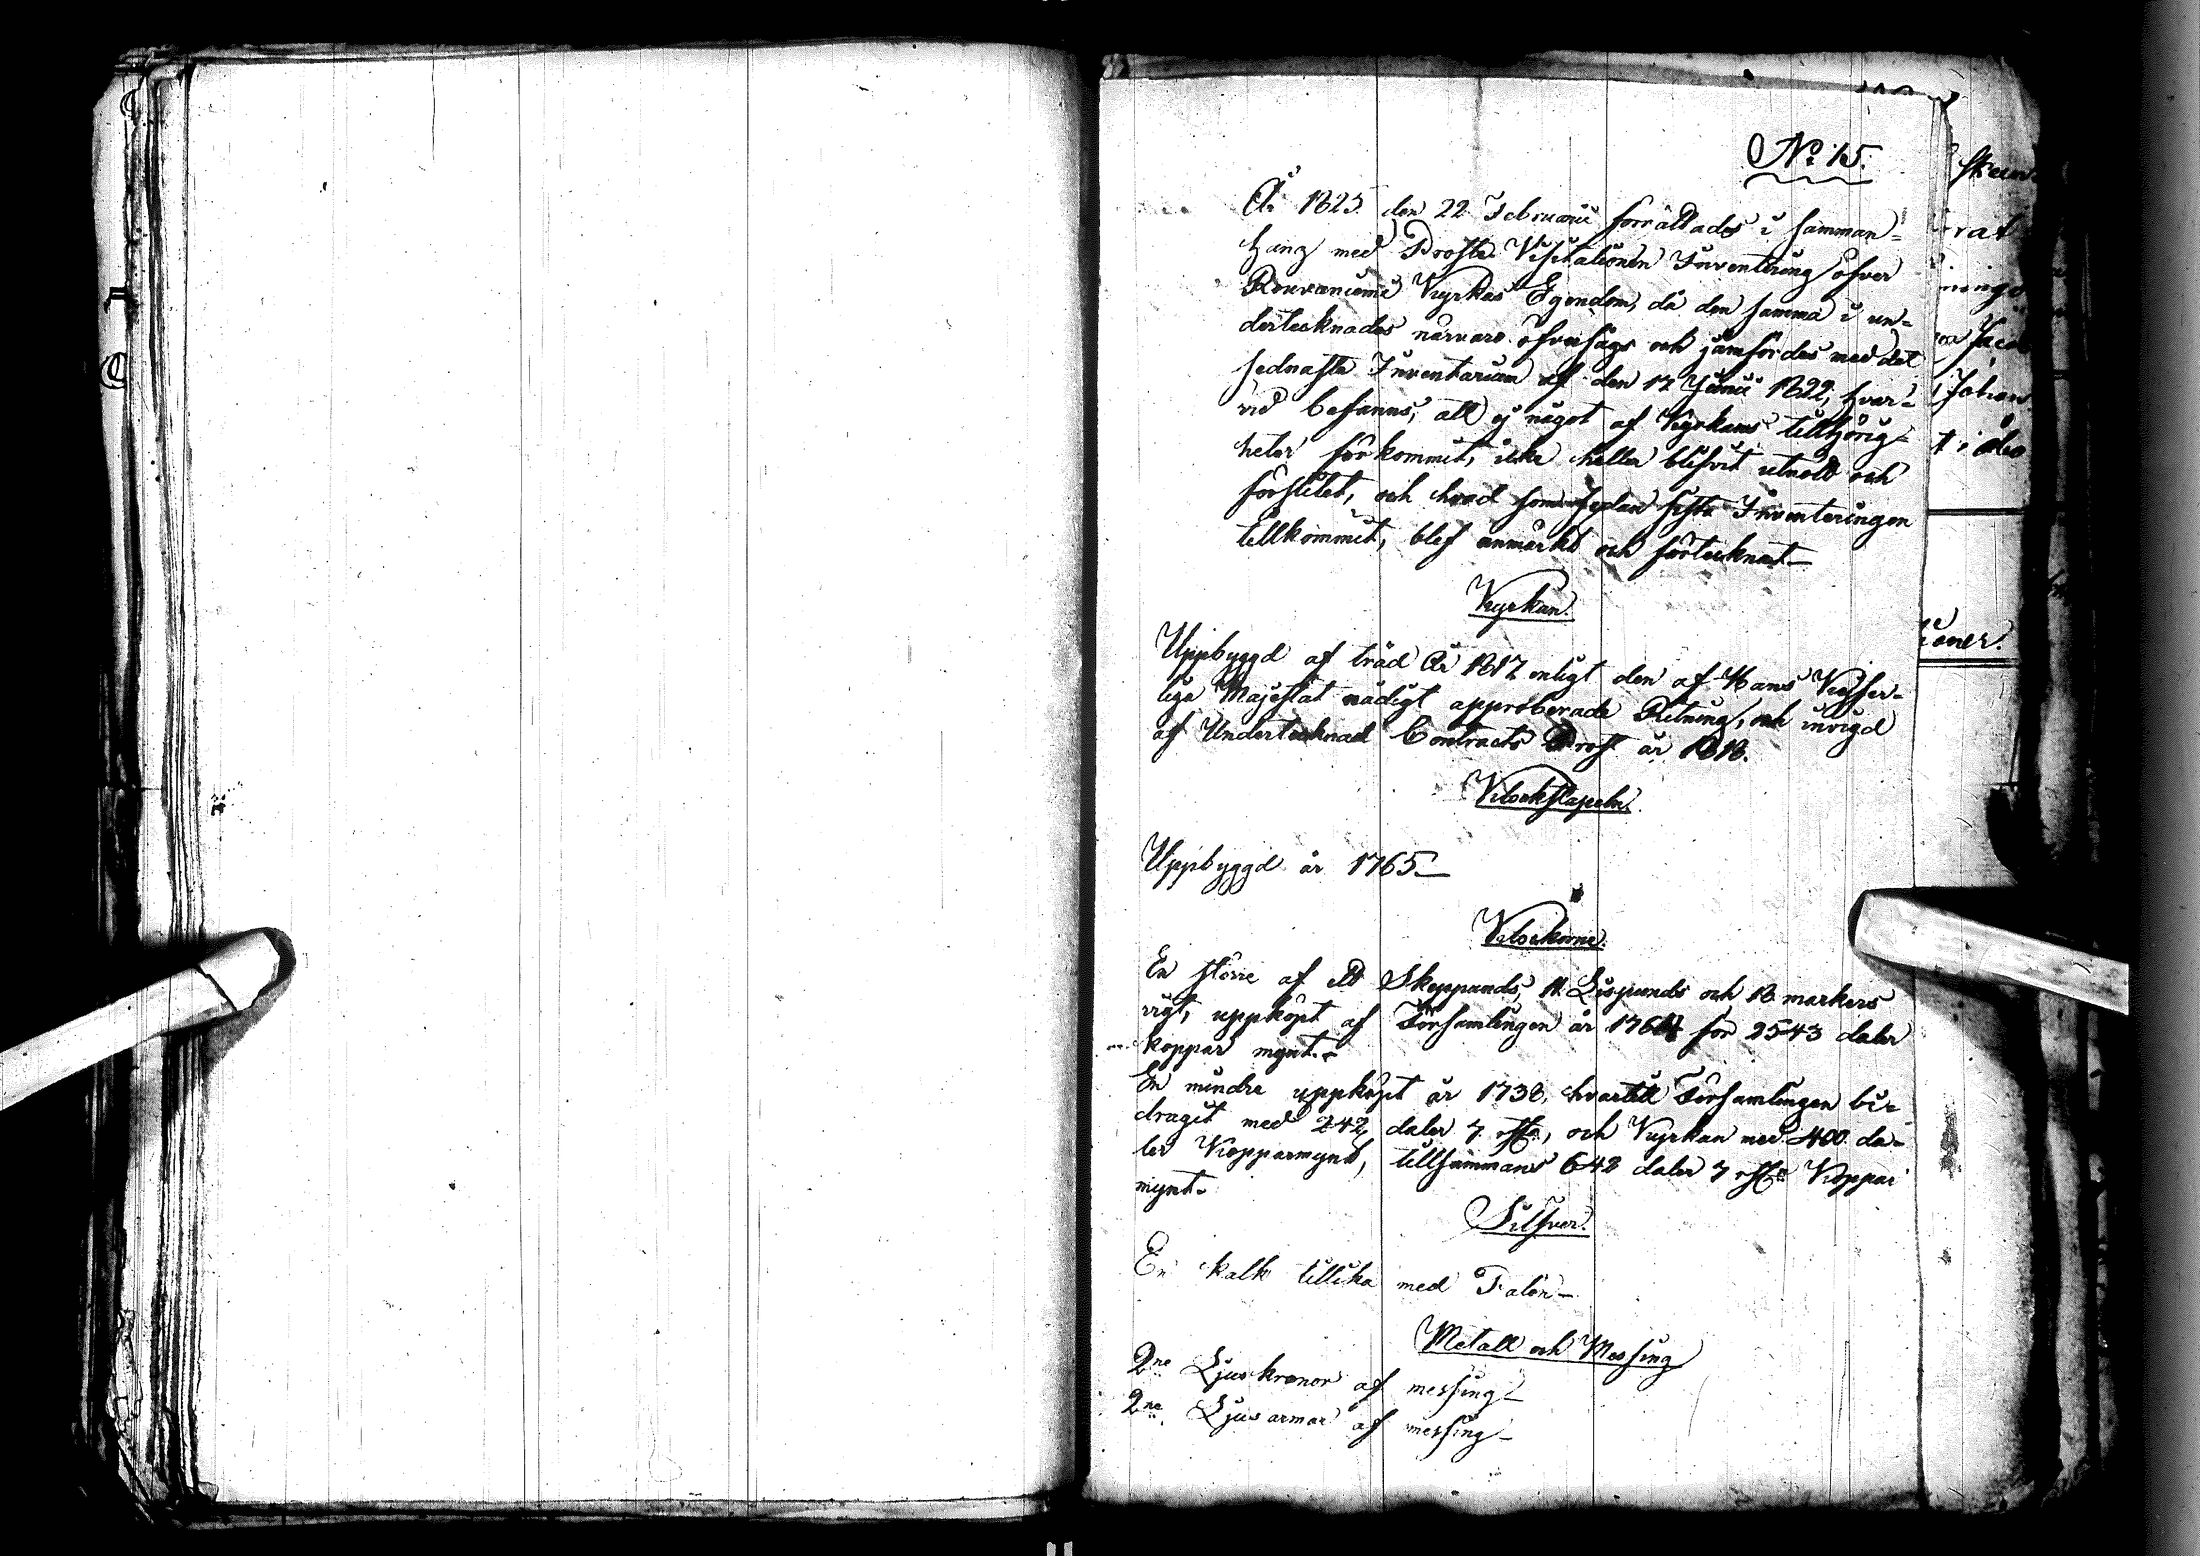 No 15.
År 1825 den 22 Februarii förrättades i samman-
hang med Prosts Visitationen Inventering öfver
Rouvaniemi Kyrkas Egendom, då den samma i un-
dertecknades närvaro öfversågs och jämfördes med det
sednaste Inventarium af den 17 Junii 1822, hvar-
vid befanns, att ej något af Kyrkans tillhörig-
heter förkommit, icke heller blifvit utnött och
förslitet, och hvad som sedan sista Inventeringen
tillkommit, blef anmärkt och förtecknat—
Kyrkan.
Uppbyggd af träd År 1817 enligt den af Hans Kejser-
lige Majestät nådigt approberade Ritning, och invigd
af Undertecknad Contracts Prost år 1818.
Klockstapeln.
Uppbyggd år 1765—
Klockorne.
En större af ett Skeppunds, 11 Lispunds och 18 markers
vigt, uppköpt af Församlingen år 1764 för 2543 daler
koppar mynt.-
En mindre uppköpt år 1738, hvartill Församlingen bi-
dragit med 242 daler 7 , och Kyrkan med 400 da-
ler Kopparmynt, tillsammans 642 daler 7 Koppar
mynt.
Silfver.
En kalk tillika med Talön—
Metall och Messing
2ne Ljuskronor af messing—
2ne Ljusarmar af messing—